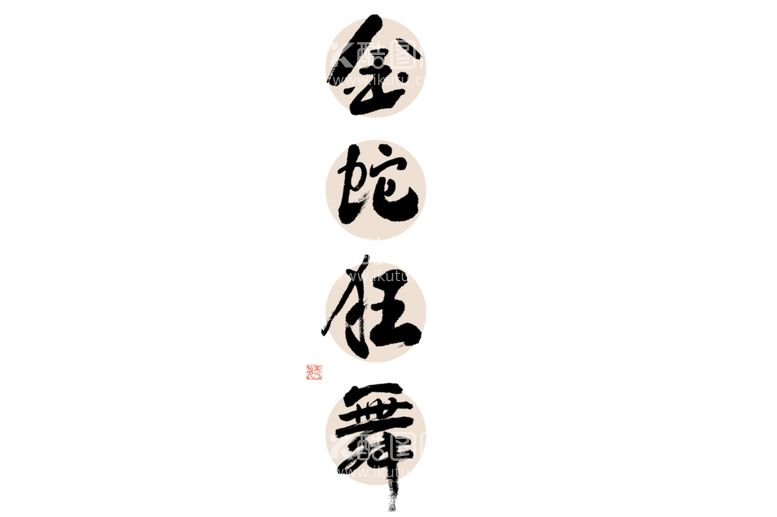 金
蛇
狂
舞